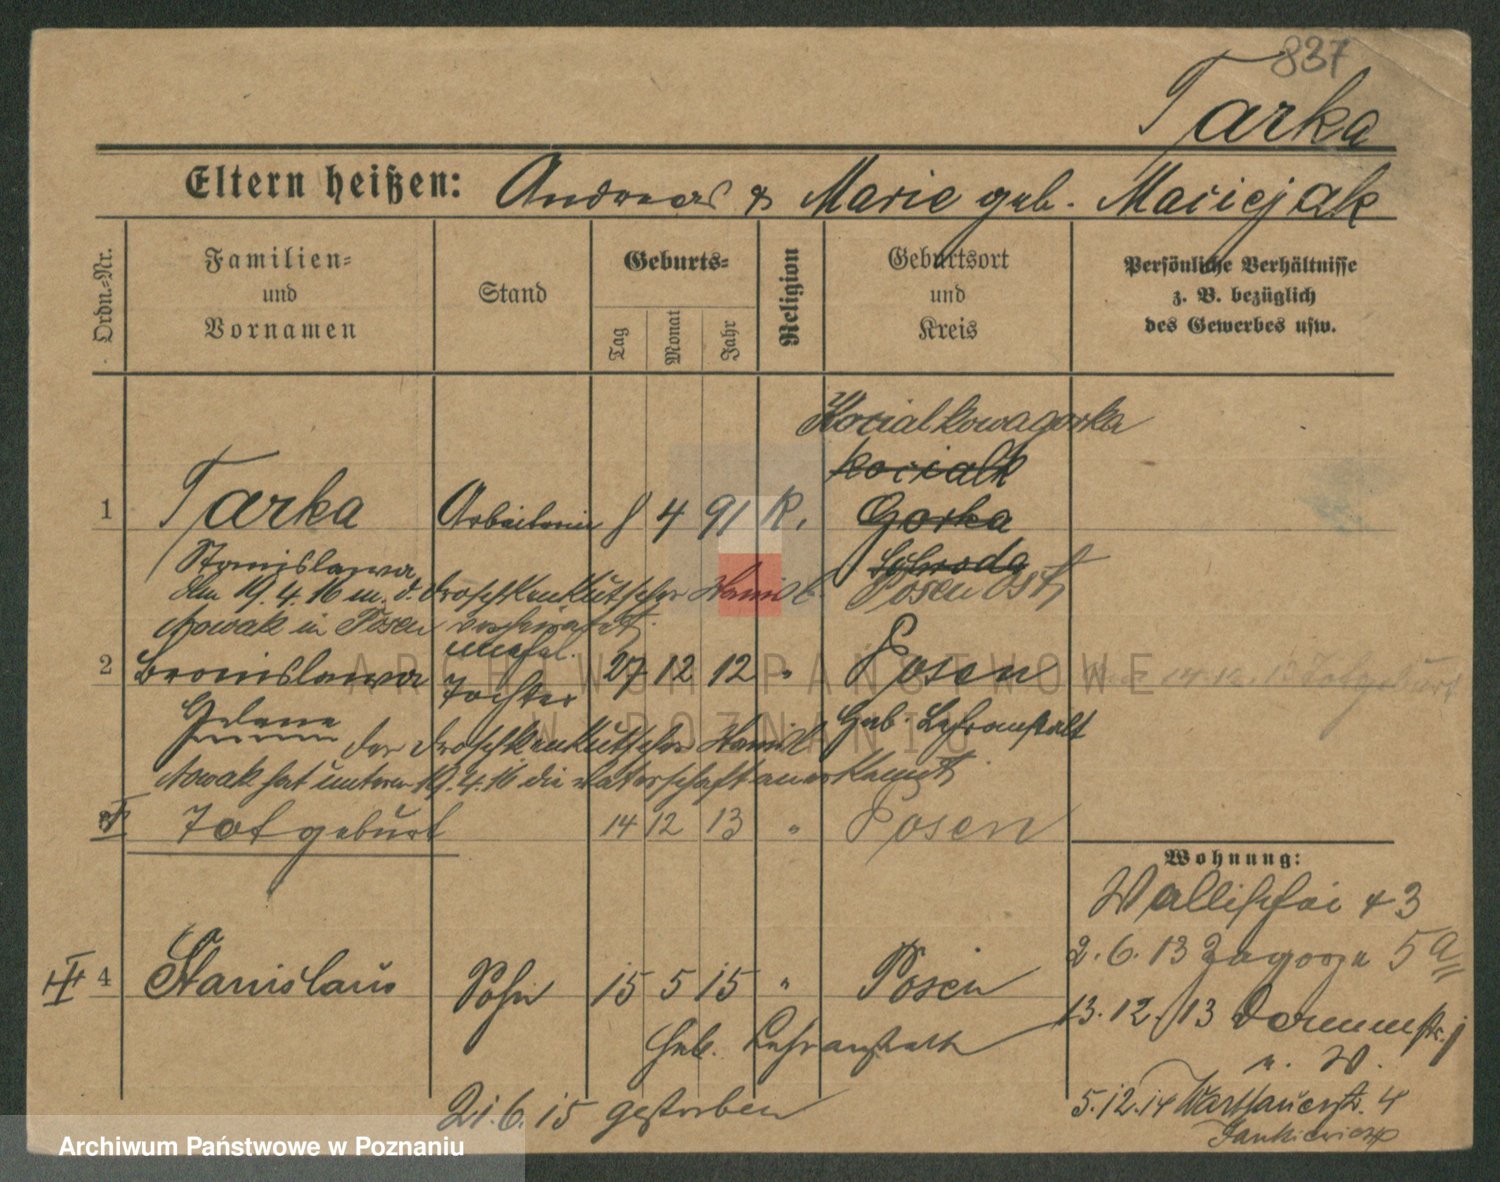 837
Tarka
Eltern heißen: Andreas & Marie geb. Maciejak
Ordn.-Nr.
Familien- und Vornamen
Stand
Geburts-
Tag
Monat
Jahr
Religion
Geburtsort und Kreis
Persönliche Verhältnisse z. B. bezüglich des Gewerbes usw.
Kocialkowagorka
Kocialk
1 Tarka Arbeiterin 8 4 91 K. Gorka
Stanislawa Schroda
Am 19.4.16 m. d. Droschkenkutscher Posen Ost
Nowak in Posen verheiratet.
unehel.
2 Bronislawa Tochter 27 12 12 " Posen
Helene Geb. Lehranstalt
der Droschkenkutscher
Nowak hat unterm 19.4.16 die Vaterschaft anerkannt.
14.12.13 Totgeburt
3 Totgeburt 14 12 13 " Posen
Wohnung:
Wallischei 43
2.6.13 Zagorze 5a
4 Stanislaus Sohn 15 5 15 " Posen
13.12.13 Dammstr. 1
Geb. Lehranstalt
n. W.
21.6.15 gestorben
5.12.14 Warthauerstr. 4
Jankiewicz
ARCHIWUM PAŃSTWOWE
W POZNANIU
Archiwum Państwowe w Poznaniu